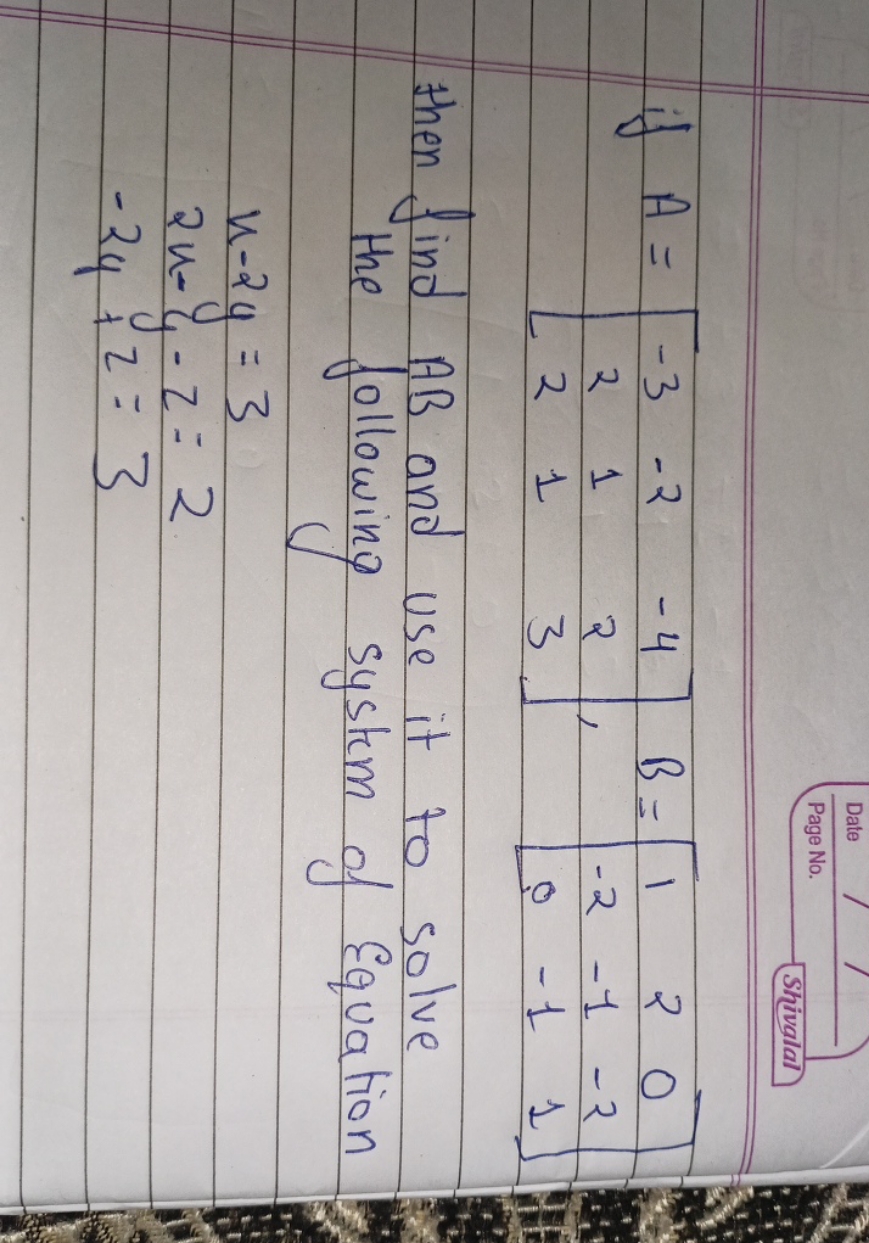 Date / /
Page No.
Shivalal
if A = [ -3 -2 -4
2 1 2
2 1 3 ] , B = [ 1 2 0
-2 -1 -2
0 -1 1 ]
then find AB and use it to solve
the following system of Equation
x-2y = 3
2x-y-z = 2
-2y+z = 3